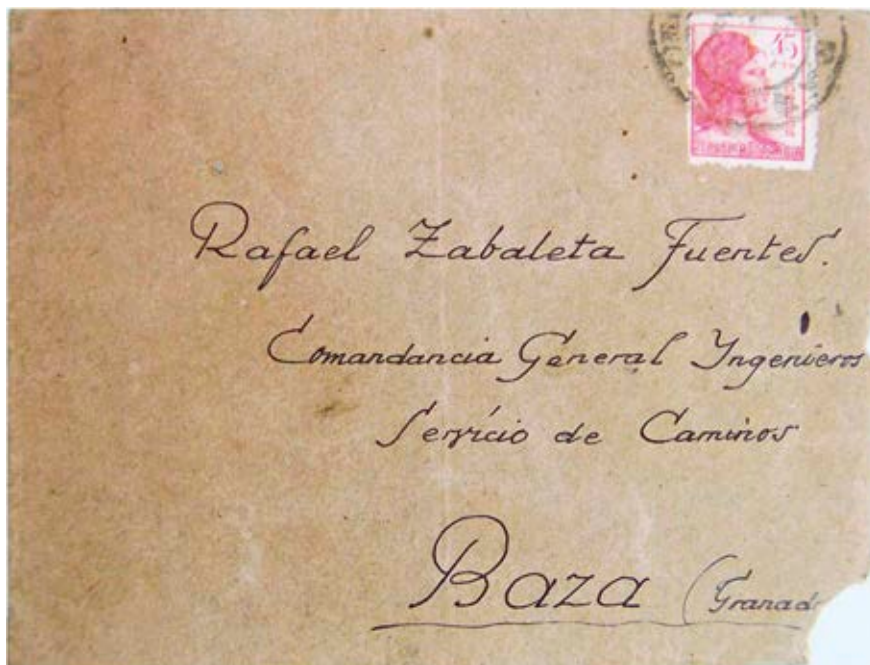 45
Rafael Zabaleta Fuentes.
Comandancia General Yngenieros
Servicio de Caminos
Baza (Granad